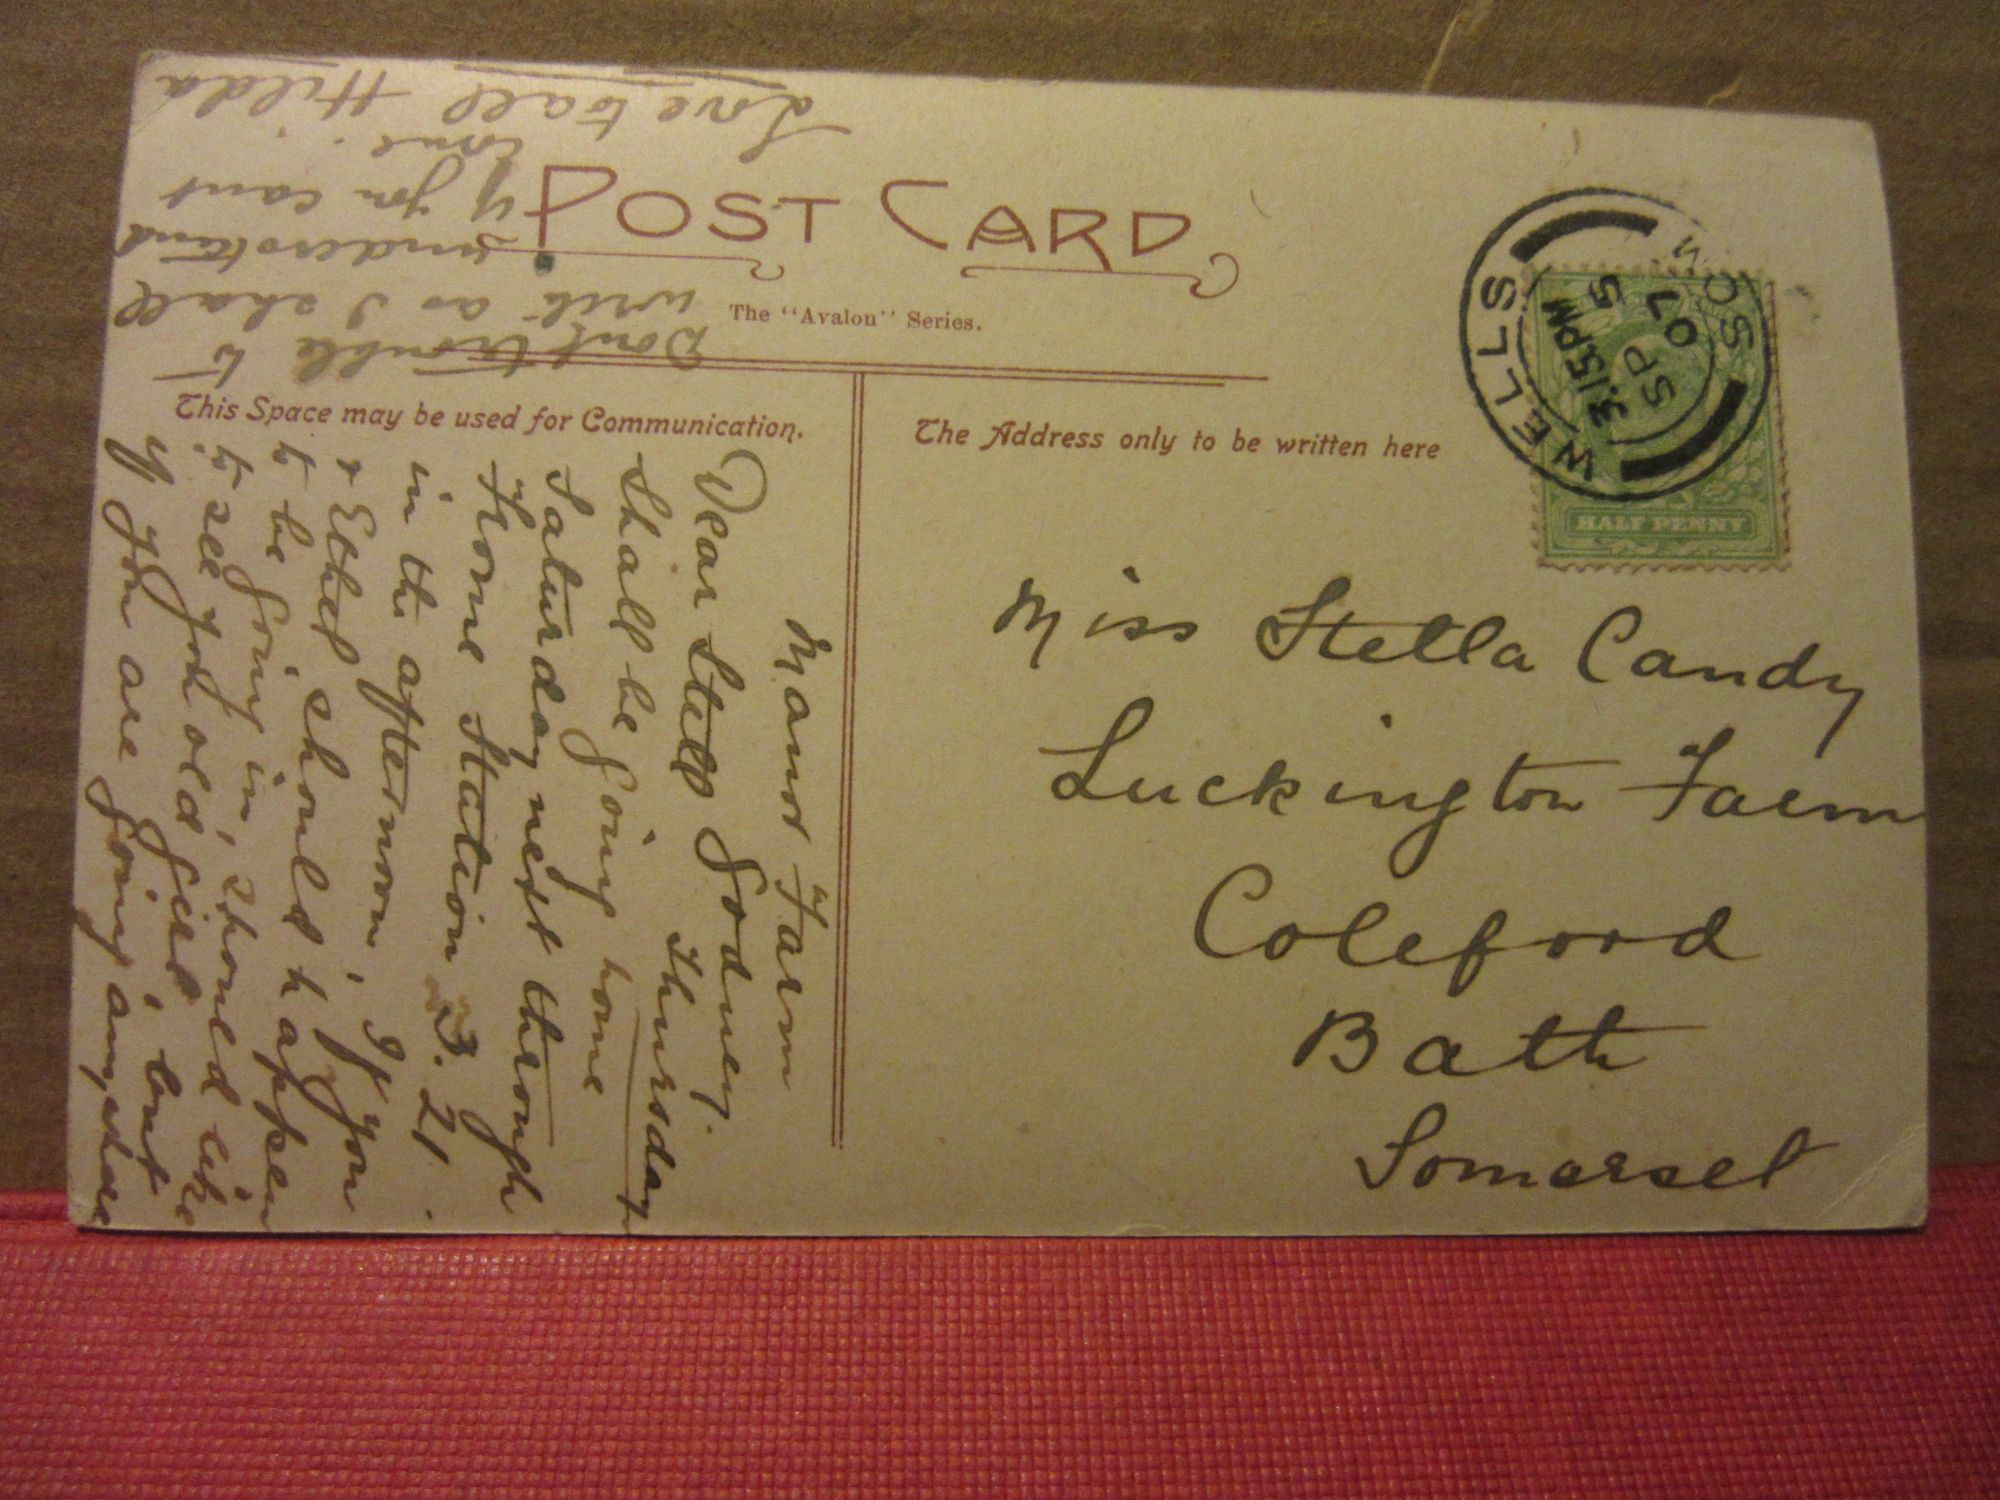 POST CARD
The "Avalon" Series.
This Space may be used for Communication.
The Address only to be written here
WELLS SOM
3.15PM
SP 5
07
HALF PENNY
Miss Stella Candy
Luckington Farm
Coleford
Bath
Somerset
Manor Farm
Godney
Thursday
Dear Stell
Shall be going home
Saturday next through
Frome Station 3.21
in the afternoon, If you
& Ethel should happen
to be going in, should like
to see you old girl, but
if you are going anywhere
Dont trouble to
write as I shall
understand
if you cant
come.
Love to all Hilda